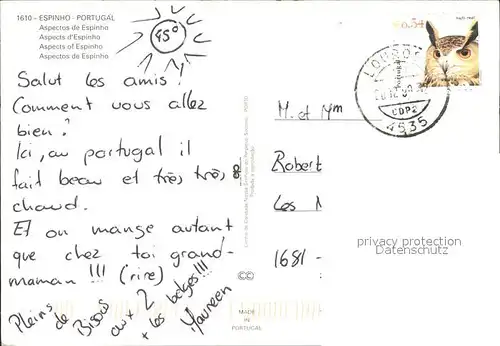 1610 - ESPINHO - PORTUGAL
Aspectos de Espinho
Aspects d'Espinho
Aspects of Espinho
Aspectos de Espinho
45°
Salut les amis!
Comment vous allez
bien?
Ici, au portugal il
fait beau et très, très,
chaud.
Et on mange autant
que chez toi grand-
maman !!! (rire)
Pleins de Bisous aux 2
+ les belges!!!
Maureen
0.54
Portugal
CDP2
4535
M. et Mm
Robert
Les
1681 -
privacy protection
Datenschutz
MADE
IN
PORTUGAL